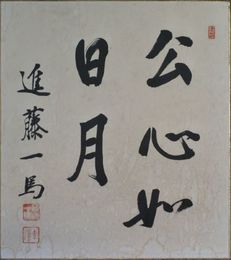 公心如
日月
進藤一馬